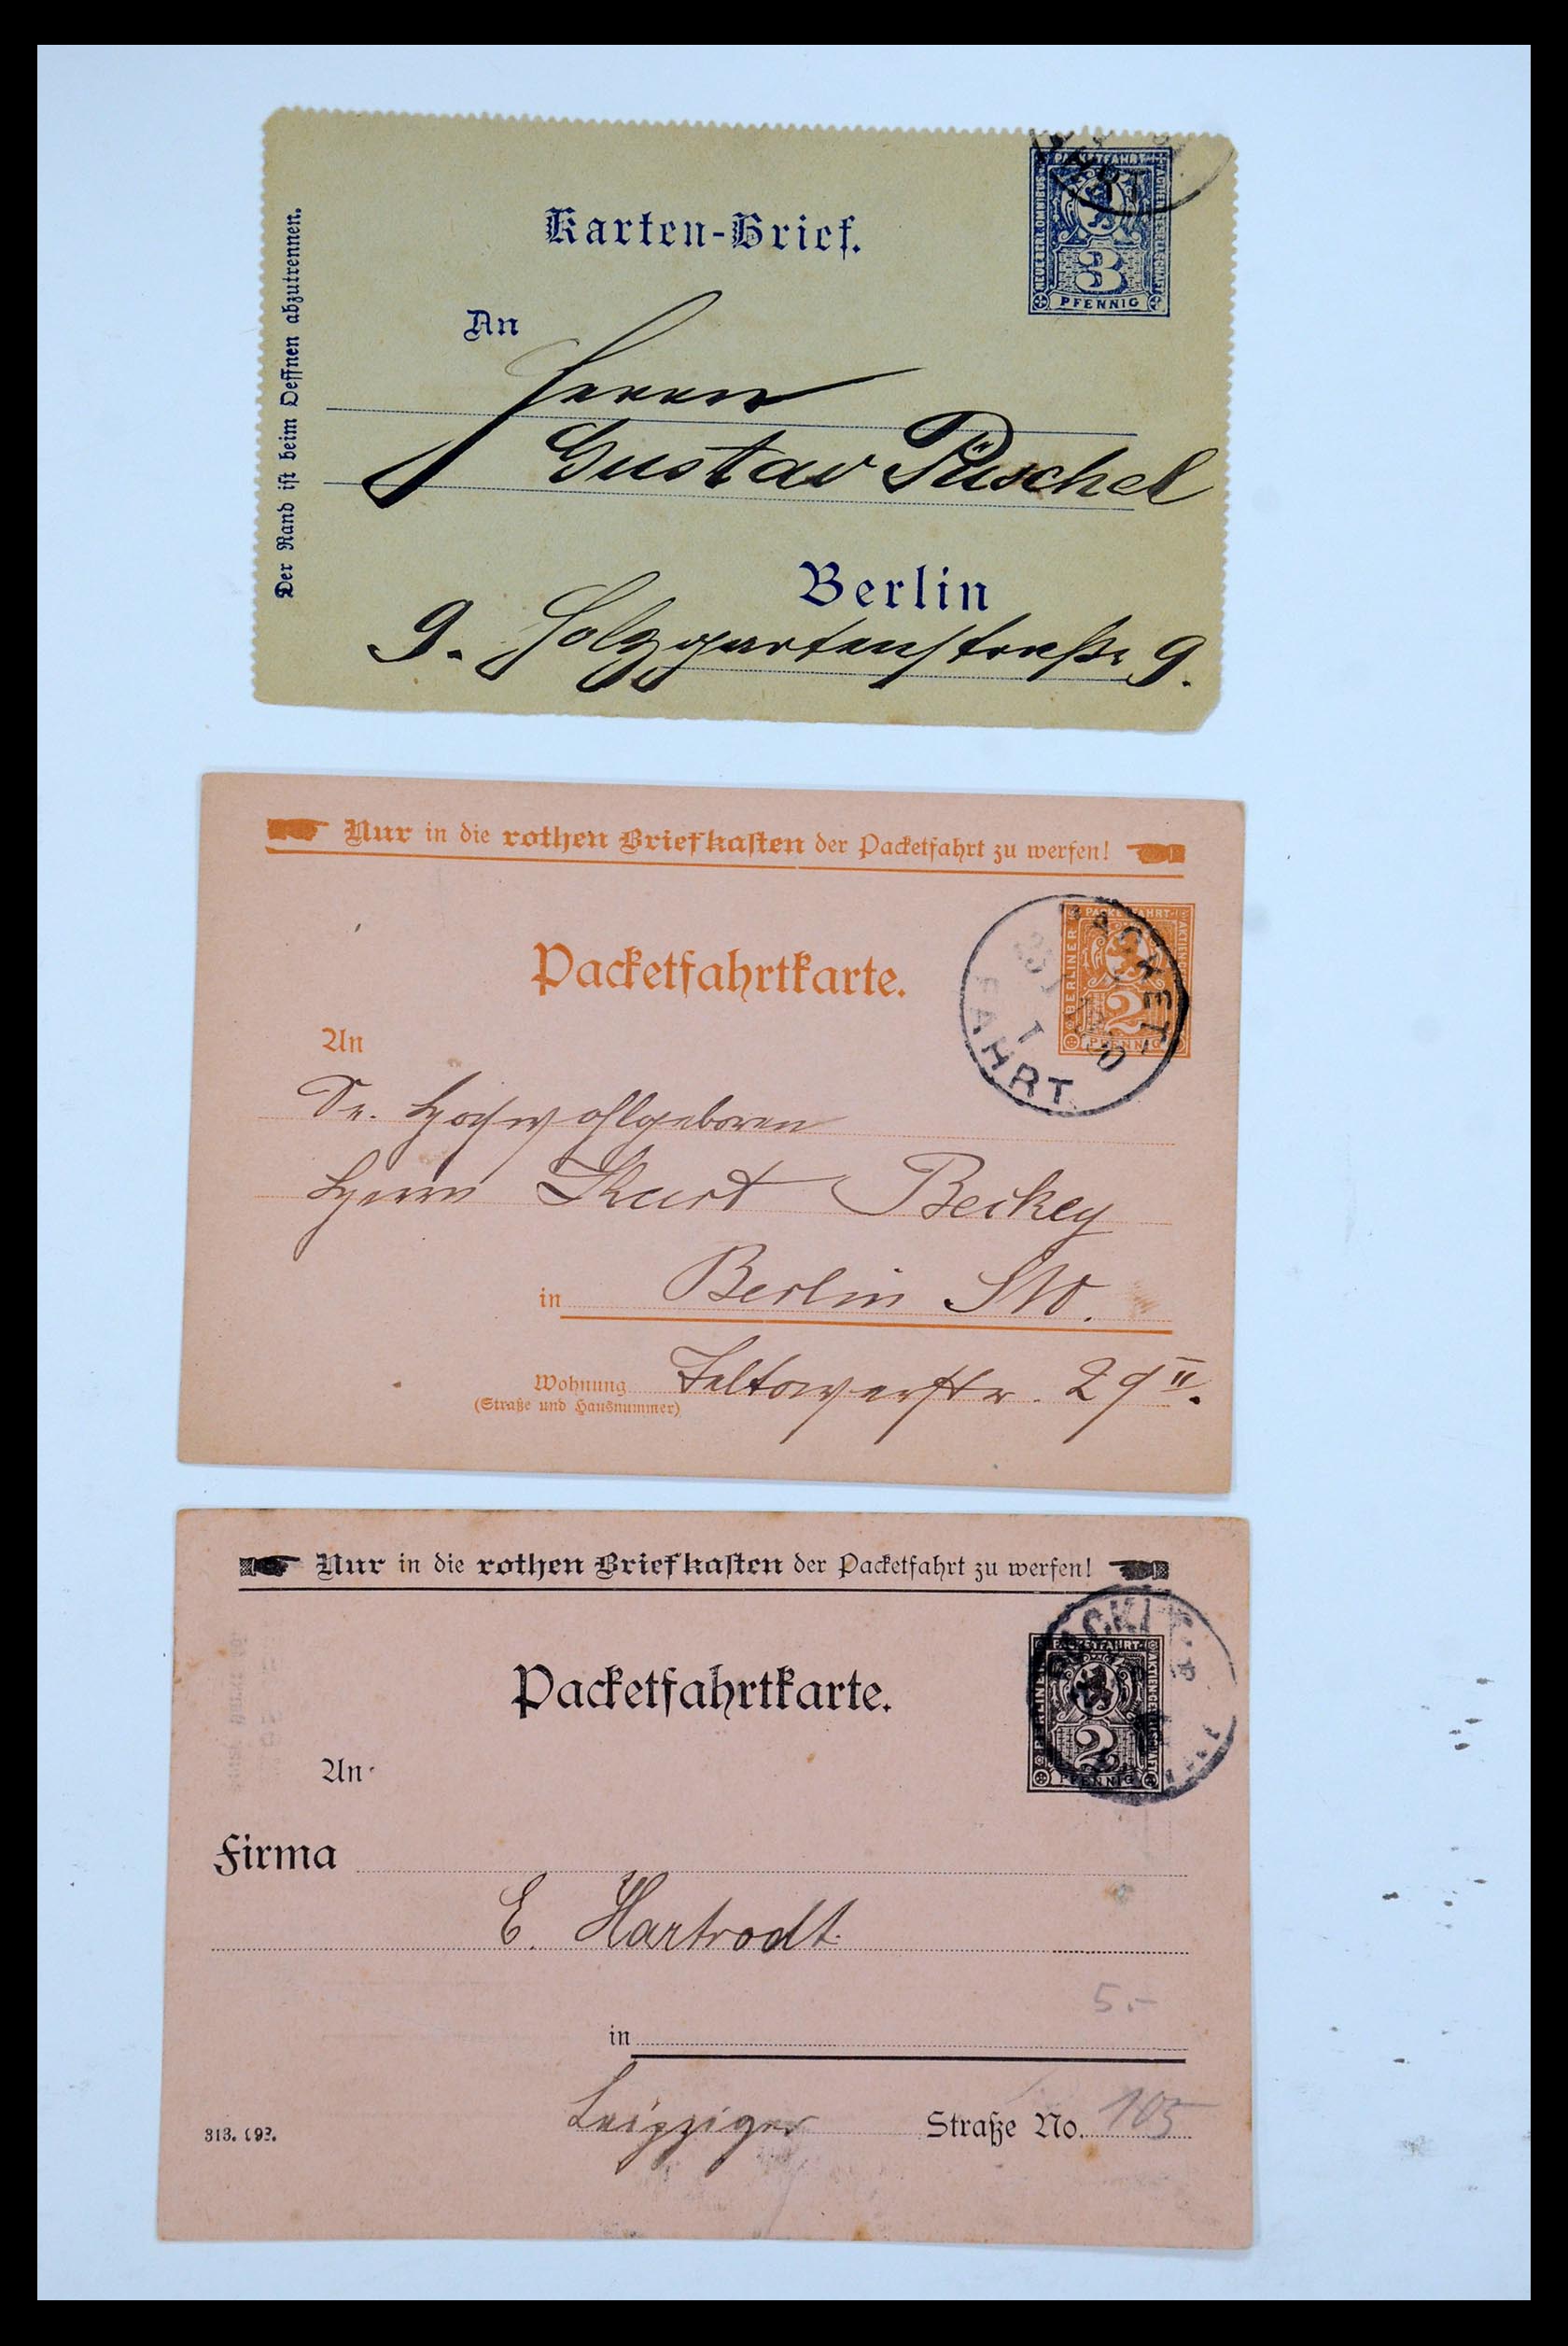 Karten-Brief.
PACKETFAHRT
NEUE BERL. OMNIBUS
ACTIEN GESELLSCHAFT
3
PFENNIG
Der Rand ist beim Oeffnen abzutrennen.
An
Herrn
Gustav Püschel
Berlin
9. Holzgartenstraße 9.
Nur in die rothen Briefkasten der Packetfahrt zu werfen!
Packetfahrtkarte.
PACKETFAHRT
BERLINER
2
PFENNIG
PACKET-
FAHRT
An
Sr. Hochwohlgeboren
Herrn Kurt Beckey
in Berlin SW.
Wohnung Teltowerstr. 29 II.
(Straße und Hausnummer)
Nur in die rothen Briefkasten der Packetfahrt zu werfen!
Packetfahrtkarte.
PACKETFAHRT
BERLINER
AKTIENGESELLSCHAFT
2
PFENNIG
An
Firma
E. Hartrodt.
5.-
in
Leipziger Straße No. 105
313.